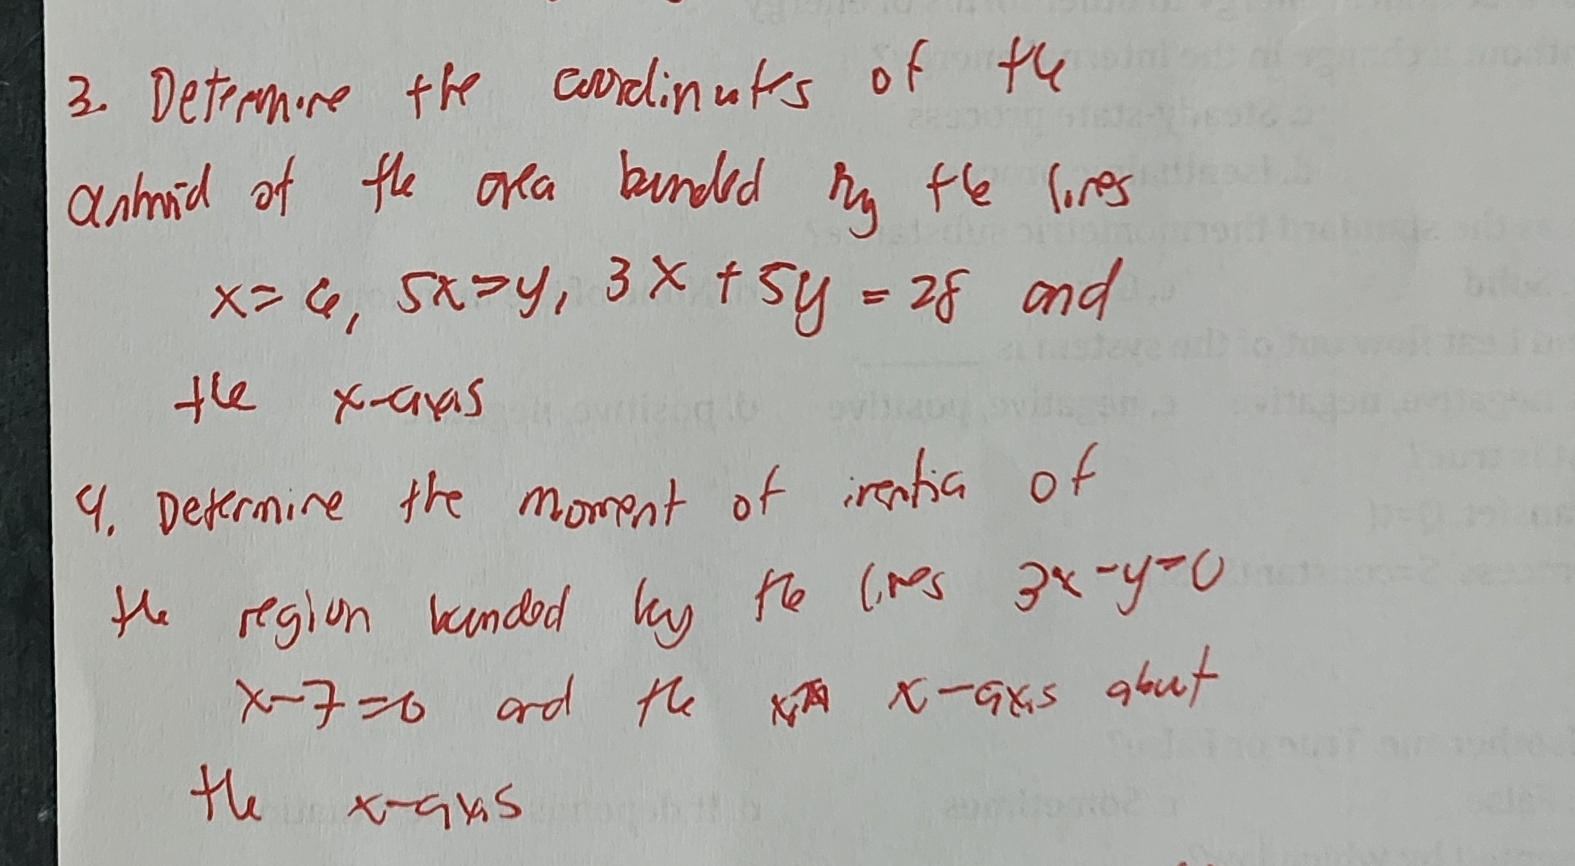 3. Determine the coordinates of the
centroid of the area bounded by the lines
x = 6, 5x = y, 3x + 5y = 28 and
the x-axis
4. Determine the moment of inertia of
the region bounded by the lines 3x - y = 0
x - 7 = 0 and the x-axis about
the x-axis